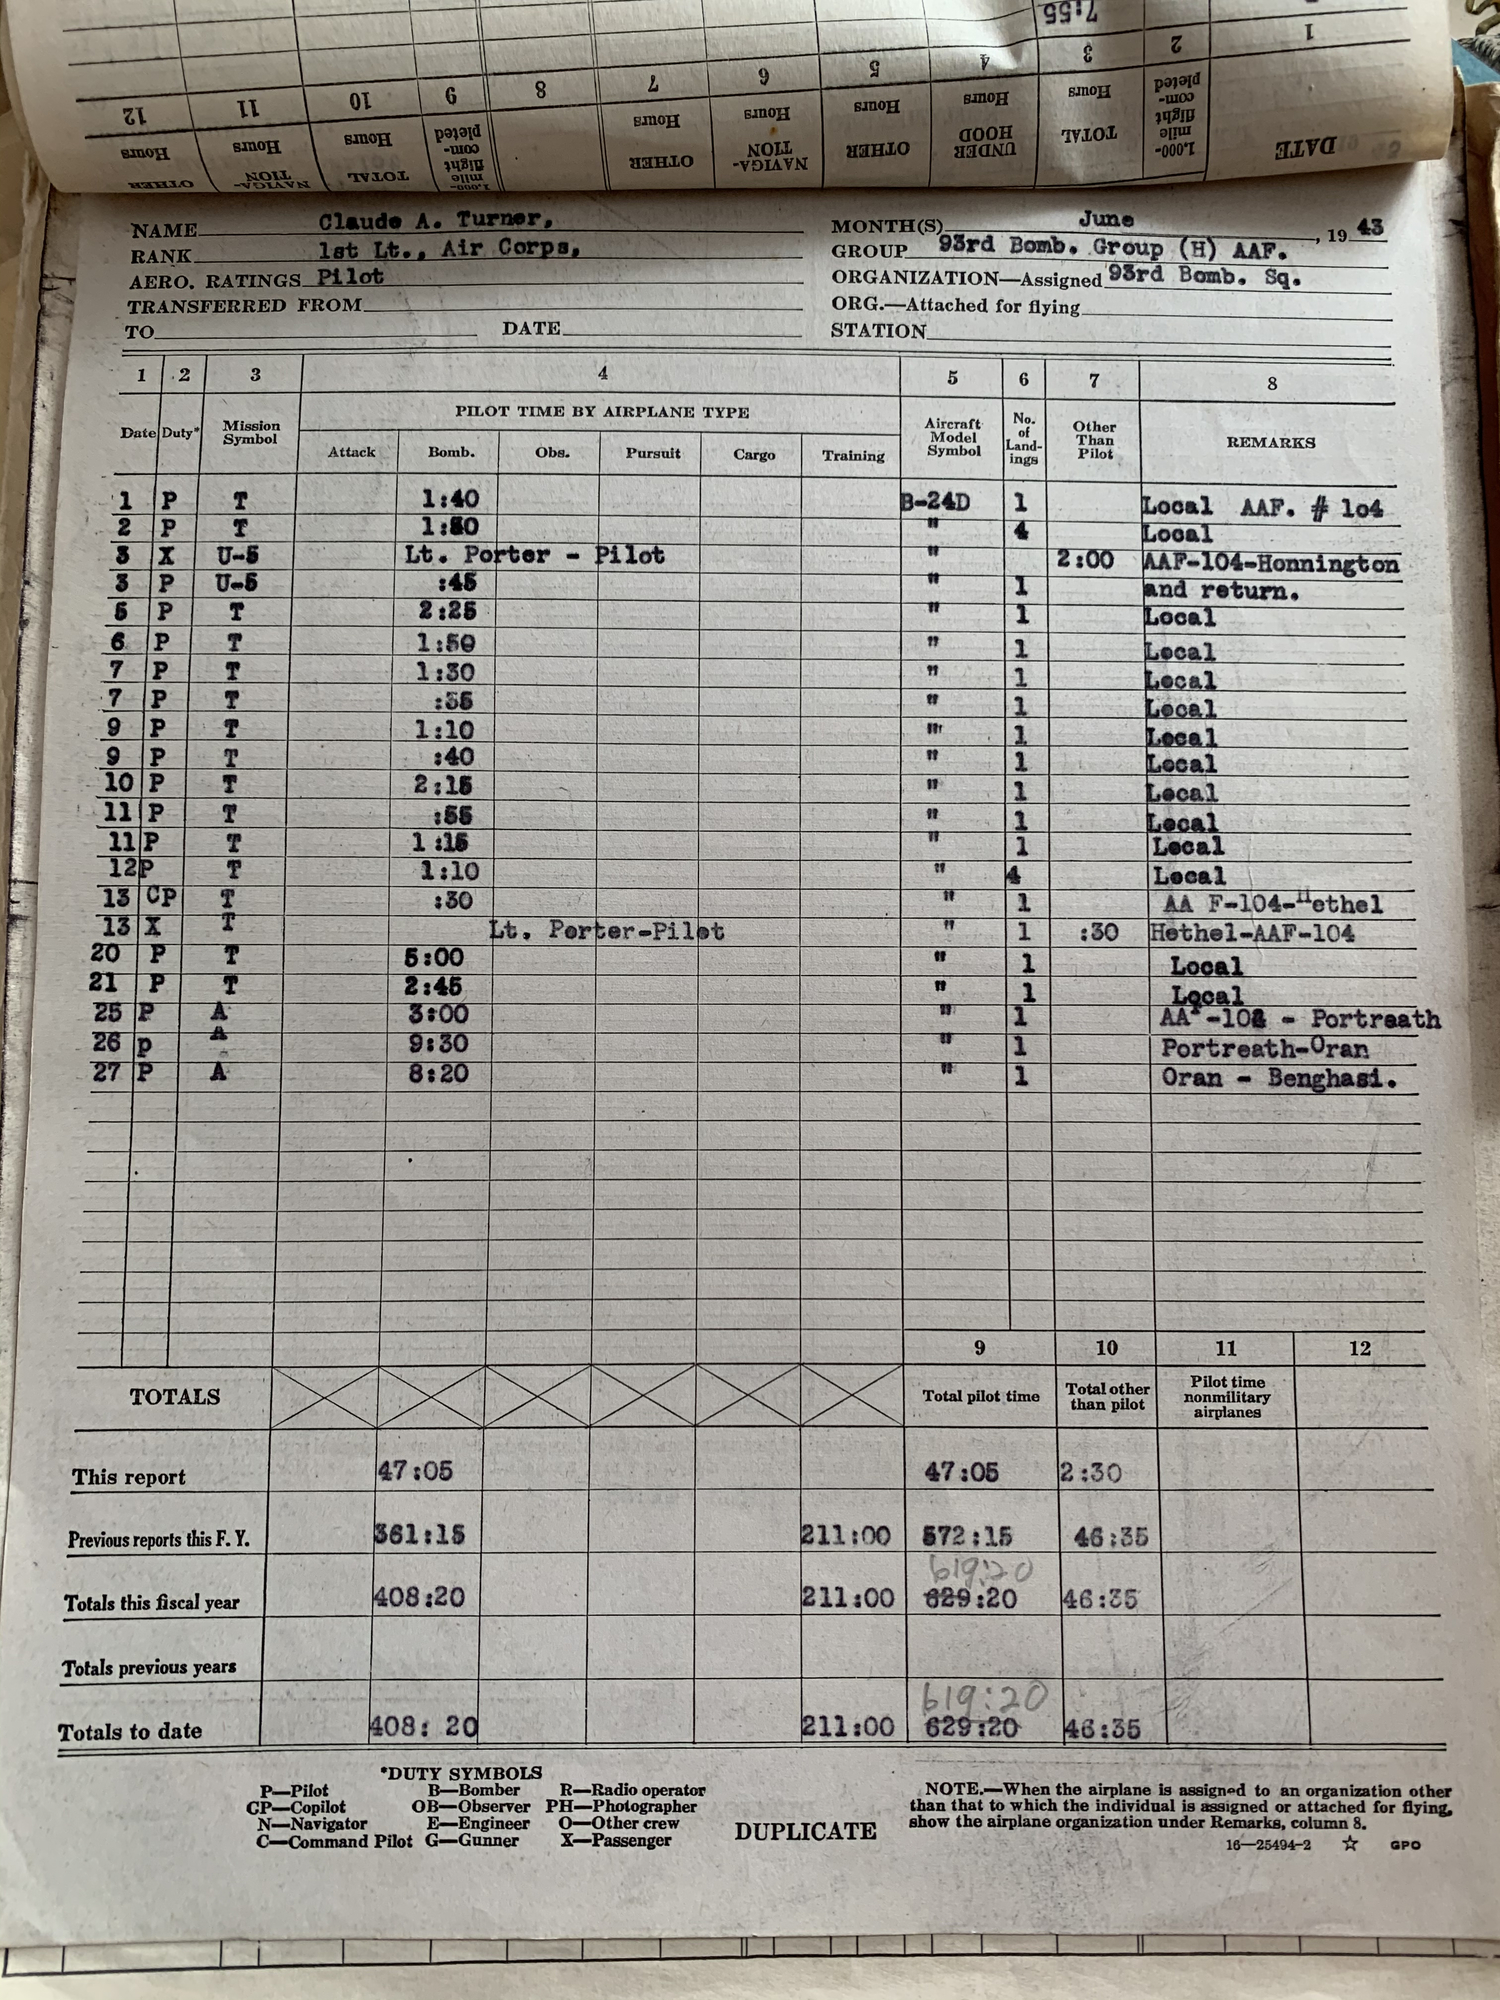 7:55
1 2 3 4 5 6 7 8 9 10 11 12
DATE 1,000-mile flight completed TOTAL Hours UNDER HOOD Hours OTHER Hours NAVIGATION Hours OTHER Hours 1,000-mile flight completed TOTAL Hours NAVIGATION Hours OTHER Hours
NAME Claude A. Turner, MONTH(S) June , 19 43
RANK 1st Lt., Air Corps, GROUP 93rd Bomb. Group (H) AAF.
AERO. RATINGS Pilot ORGANIZATION—Assigned 93rd Bomb. Sq.
TRANSFERRED FROM ORG.—Attached for flying
TO DATE STATION
1 2 3 4 5 6 7 8
Date Duty* Mission Symbol PILOT TIME BY AIRPLANE TYPE Aircraft Model Symbol No. of Land-ings Other Than Pilot REMARKS
Attack Bomb. Obs. Pursuit Cargo Training
1 P T 1:40 B-24D 1 Local AAF. # 1o4
2 P T " 4 Local
3 X U-5 Lt. Porter - Pilot " 2:00 AAF-104-Honnington
3 P U-5 :45 " 1 and return.
5 P T 2:25 " 1 Local
6 P T 1:50 " 1 Local
7 P T 1:30 " 1 Local
7 P T :35 " 1 Local
9 P T 1:10 " 1 Local
9 P T :40 " 1 Local
10 P T 2:15 " 1 Local
11 P T :55 " 1 Local
11 P T 1:15 " 1 Local
12 P T 1:10 " 4 Local
13 CP T :30 " 1 AA F-104-Hethel
13 X T Lt. Porter-Pilot " 1 :30 Hethel-AAF-104
20 P T 5:00 " 1 Local
21 P T 2:45 " 1 Local
25 P A 3:00 " 1 - Portreath
26 p A 9:30 " 1 Portreath-Oran
27 P A 8:20 " 1 Oran - Benghasi.
9 10 11 12
TOTALS Total pilot time Total other than pilot Pilot time nonmilitary airplanes
This report 47:05 47:05 2:30
Previous reports this F. Y. 361:15 211:00 572:15 46:35
619:20
Totals this fiscal year 408:20 211:00 629:20 46:35
Totals previous years
619:20
Totals to date 408: 20 211:00 629:20 46:35
*DUTY SYMBOLS
P—Pilot B—Bomber R—Radio operator
CP—Copilot OB—Observer PH—Photographer
N—Navigator E—Engineer O—Other crew
C—Command Pilot G—Gunner X—Passenger
DUPLICATE
NOTE.—When the airplane is assigned to an organization other
than that to which the individual is assigned or attached for flying,
show the airplane organization under Remarks, column 8.
16—25494-2 ☆ GPO